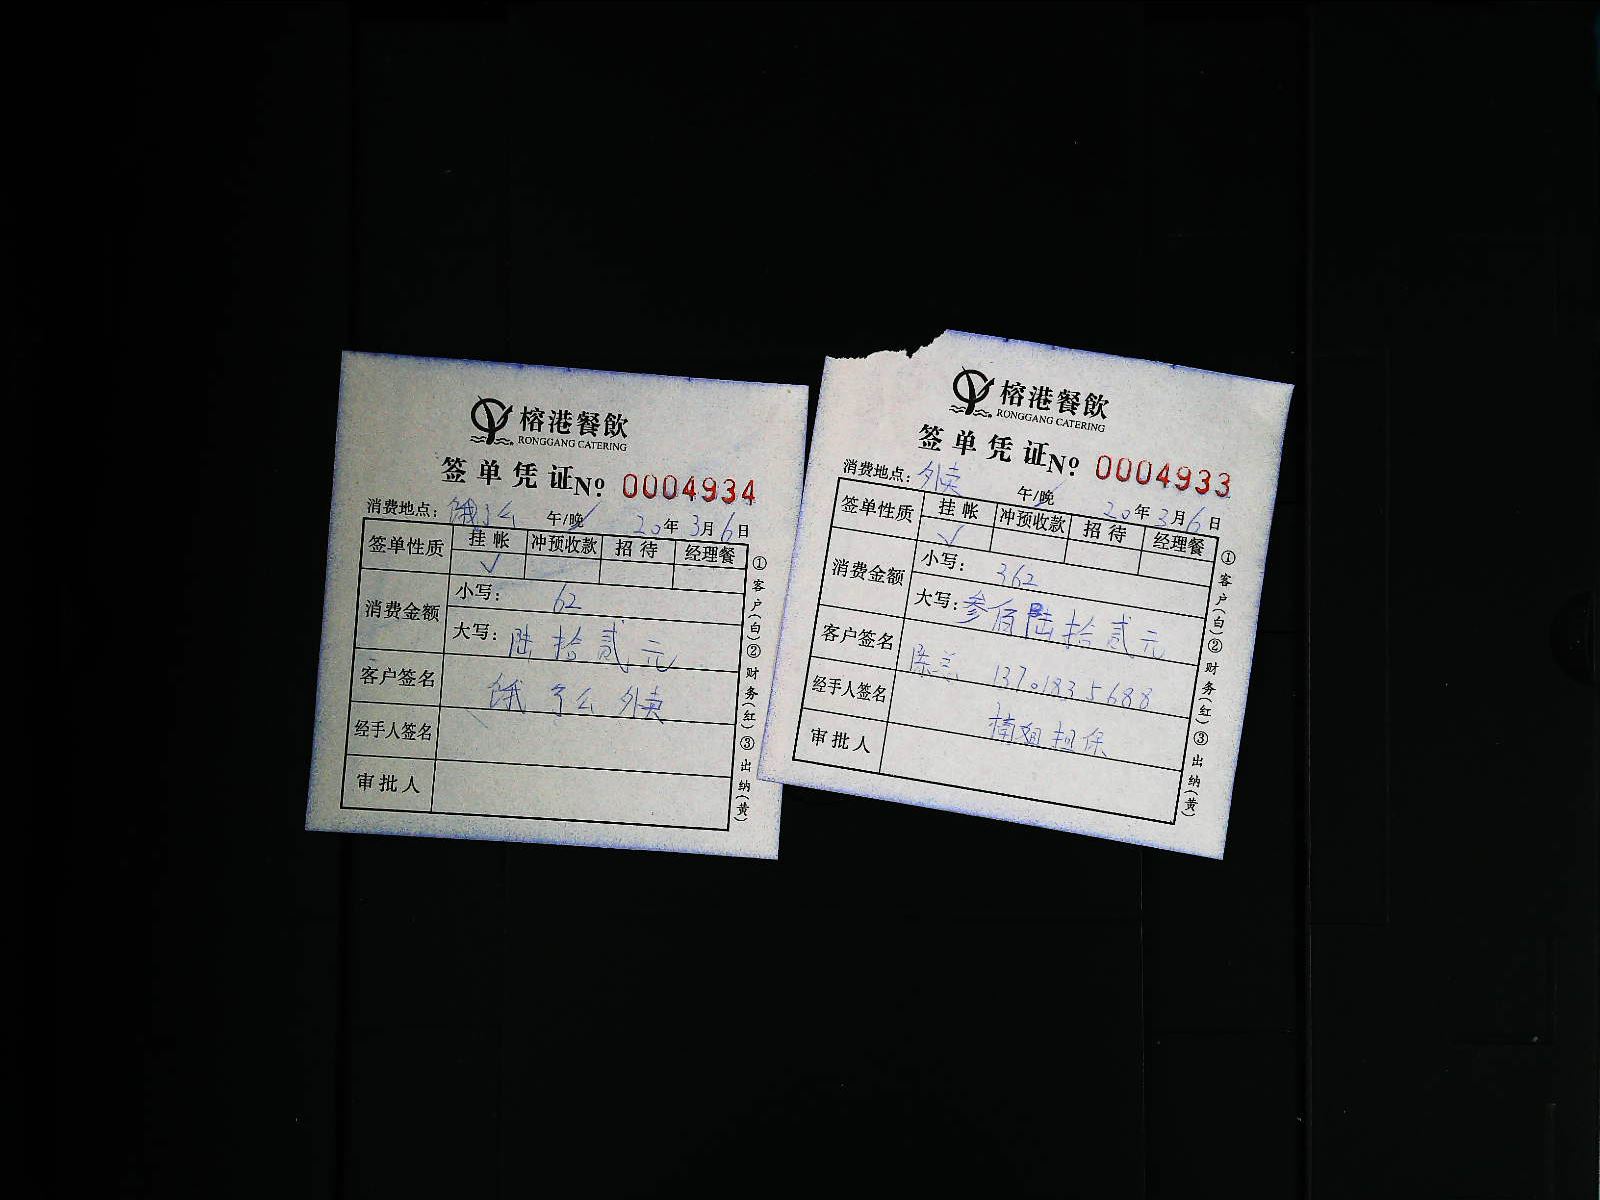 榕港餐飲
RONGGANG CATERING
签单凭证 № 0004934
消费地点：饿了么 午/晚 20年3月6日
签单性质 挂帐 冲预收款 招待 经理餐
✓
消费金额 小写： 62
大写： 陆拾贰元
客户签名 饿了么 外卖
经手人签名
审批人
①客户(白)②财务(红)③出纳(黄)
榕港餐飲
RONGGANG CATERING
签单凭证 № 0004933
消费地点：外卖 午/晚 20年3月6日
签单性质 挂帐 冲预收款 招待 经理餐
✓
消费金额 小写： 362
大写：参佰陆拾贰元
客户签名 陈总 13701835688
经手人签名 楠姐担保
审批人
①客户(白)②财务(红)③出纳(黄)